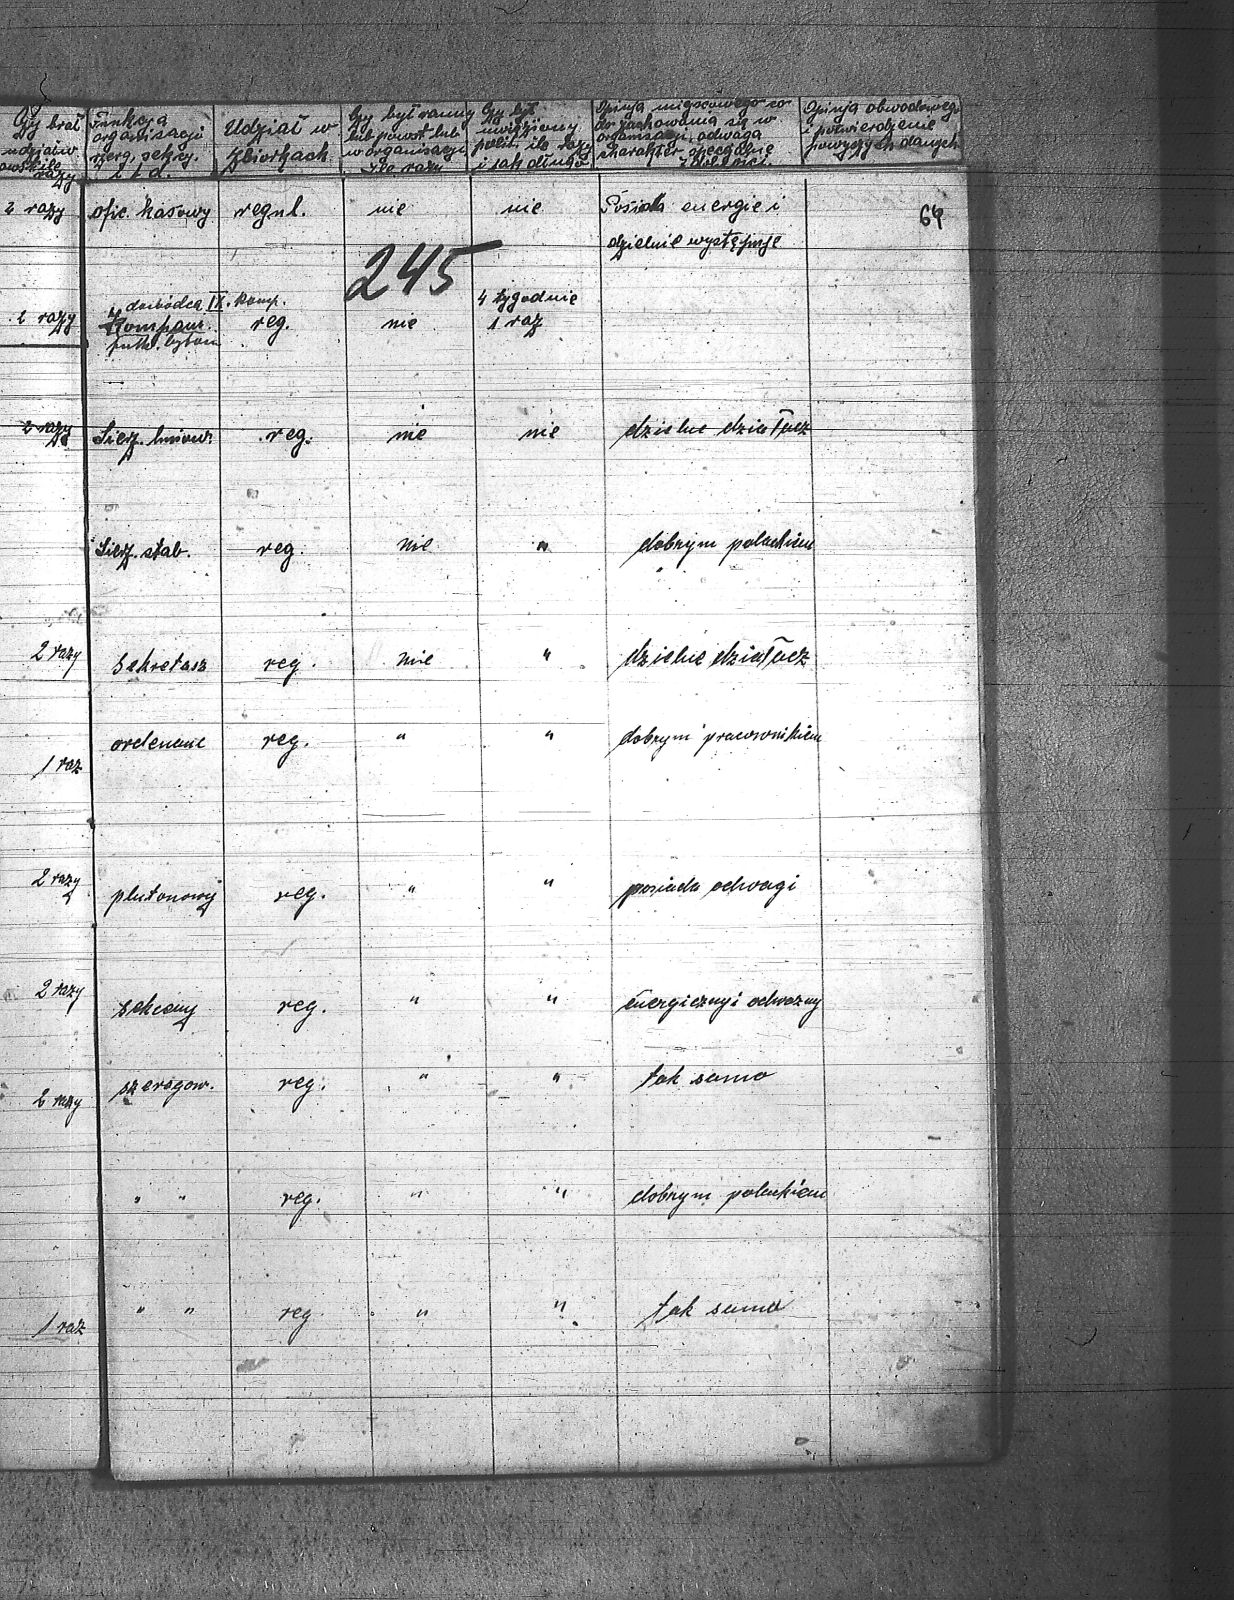 Czy brał
udział w
ile
razy
Funkcja
organisacji
szerg. sekcy.
i t. d.
Udział w
zbiorkach
Czy był ranny
lub poniósł lub
w organisacji
ile razy
Czy był
uwięziony
polit. ile razy
i jak długo
Opinja miejscowego co
do zachowania się w
organisacji, odwaga
charakter specjalne
zdolności
Opinja obwodowego
i potwierdzenie
powyższych danych
2 razy ofic. kasowy regul. nie nie Posiada energie i 64
dzielnie występuje
245
dowódca IX. Komp. 4 tygodnie
2 razy Kompan. reg. nie 1 raz
2 razy Sierż. liniow. reg. nie nie dzielne działacz
Sierż. stab. reg. nie " dobrym polackiem
2 razy Sekretasz reg. nie " dzielne działacz
ordenanc reg. " " dobrym pracownikiem
1 raz
2 razy plutonowy reg. " " posiada odwagi
2 razy sekcany reg. " " energiczny i odwazny
2 razy szeregow. reg. " " tak samo
" " reg. " " dobrym polackiem
1 raz " " reg " " tak samo